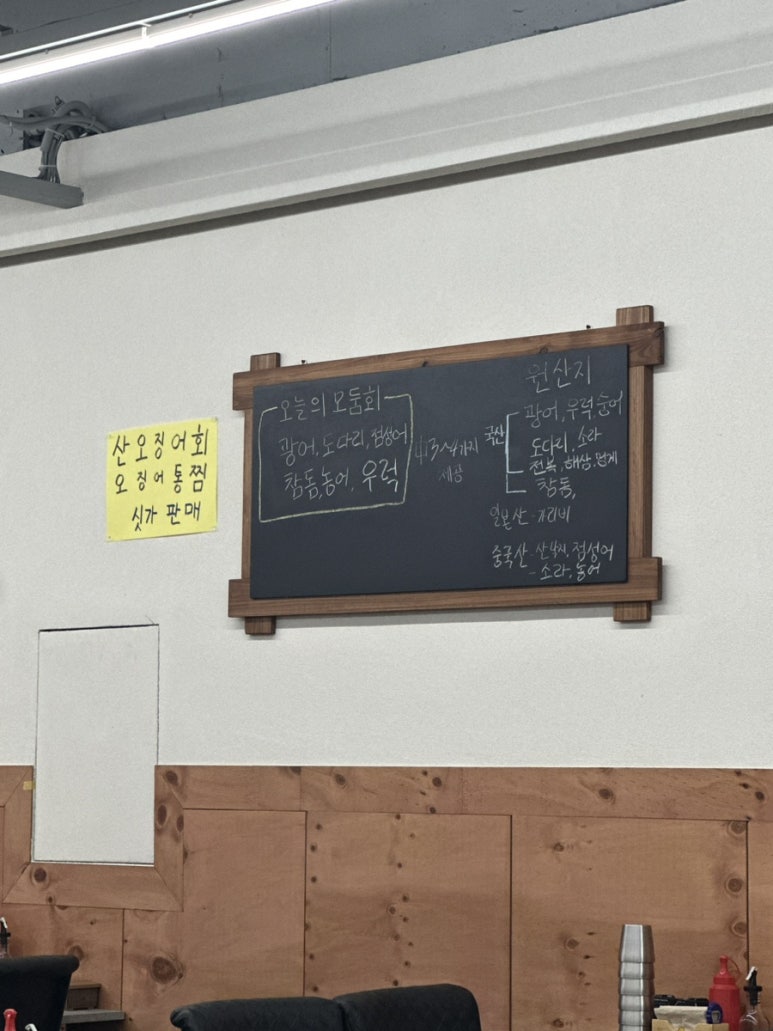 산 오징어회
오징어통찜
싯가 판매
오늘의 모둠회
광어, 도다리, 점성어
참돔, 농어, 우럭
中 3~4가지
제공
원산지
국산
광어, 우럭, 숭어
도다리, 소라
전복, 해삼, 멍게
참돔,
일본산 - 가리비
중국산 - 산낙지, 점성어
- 소라, 농어